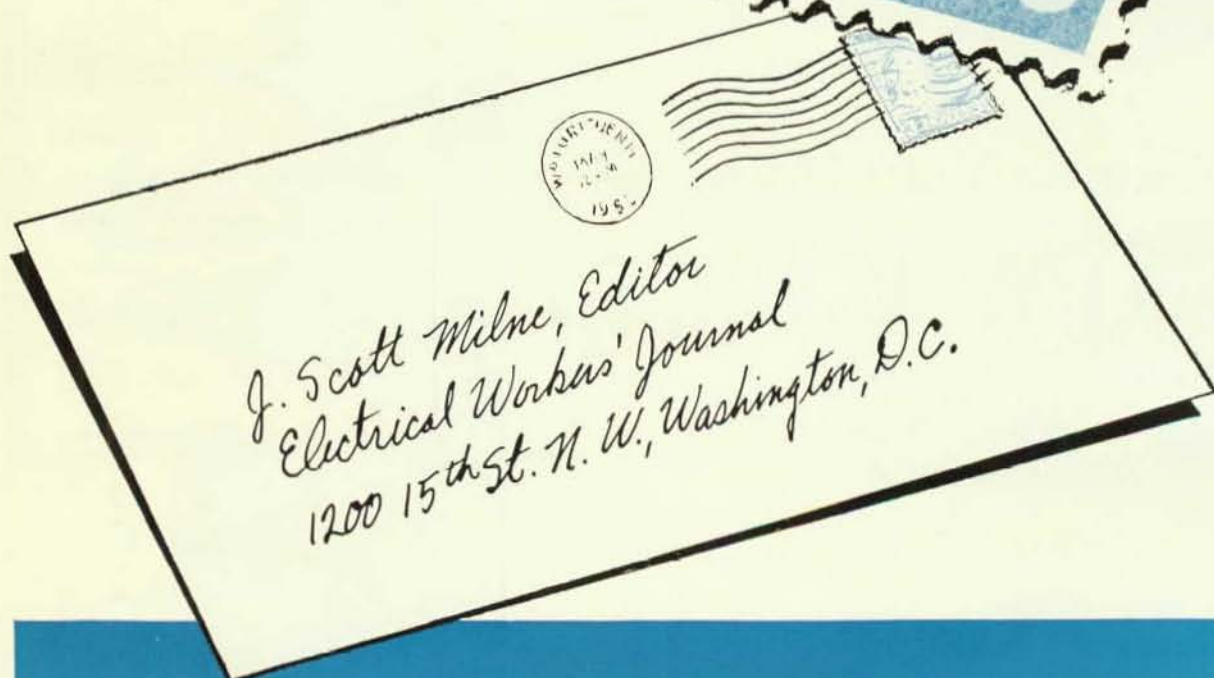 J. Scott Milne, Editor
Electrical Workers' Journal
1200 15th St. N. W., Washington, D.C.